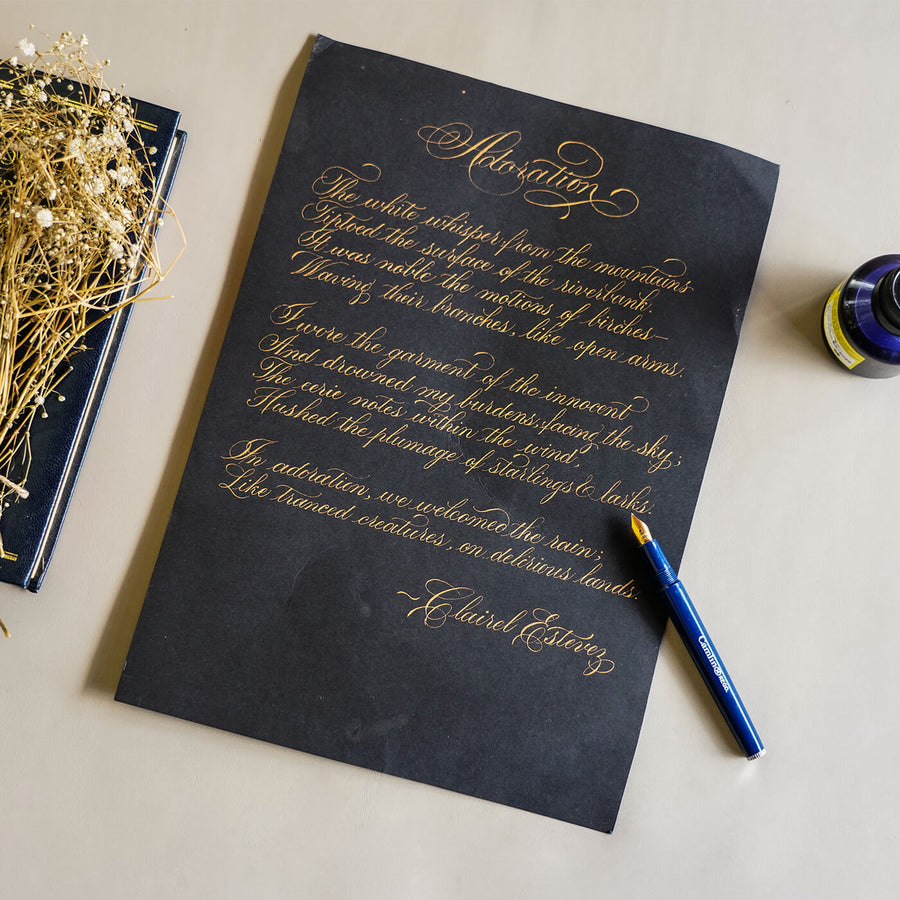 Adoration
The white whisper from the mountains
Tiptoed the surface of the riverbank.
It was noble the motions of birches—
Waving their branches, like open arms.
I wore the garment of the innocent
And drowned my burdens, facing the sky;
The eerie notes within the wind,
Hushed the plumage of starlings & larks.
In adoration, we welcomed the rain;
Like tranced creatures, on delirious lands.
~Clairel Estevez
Camlin